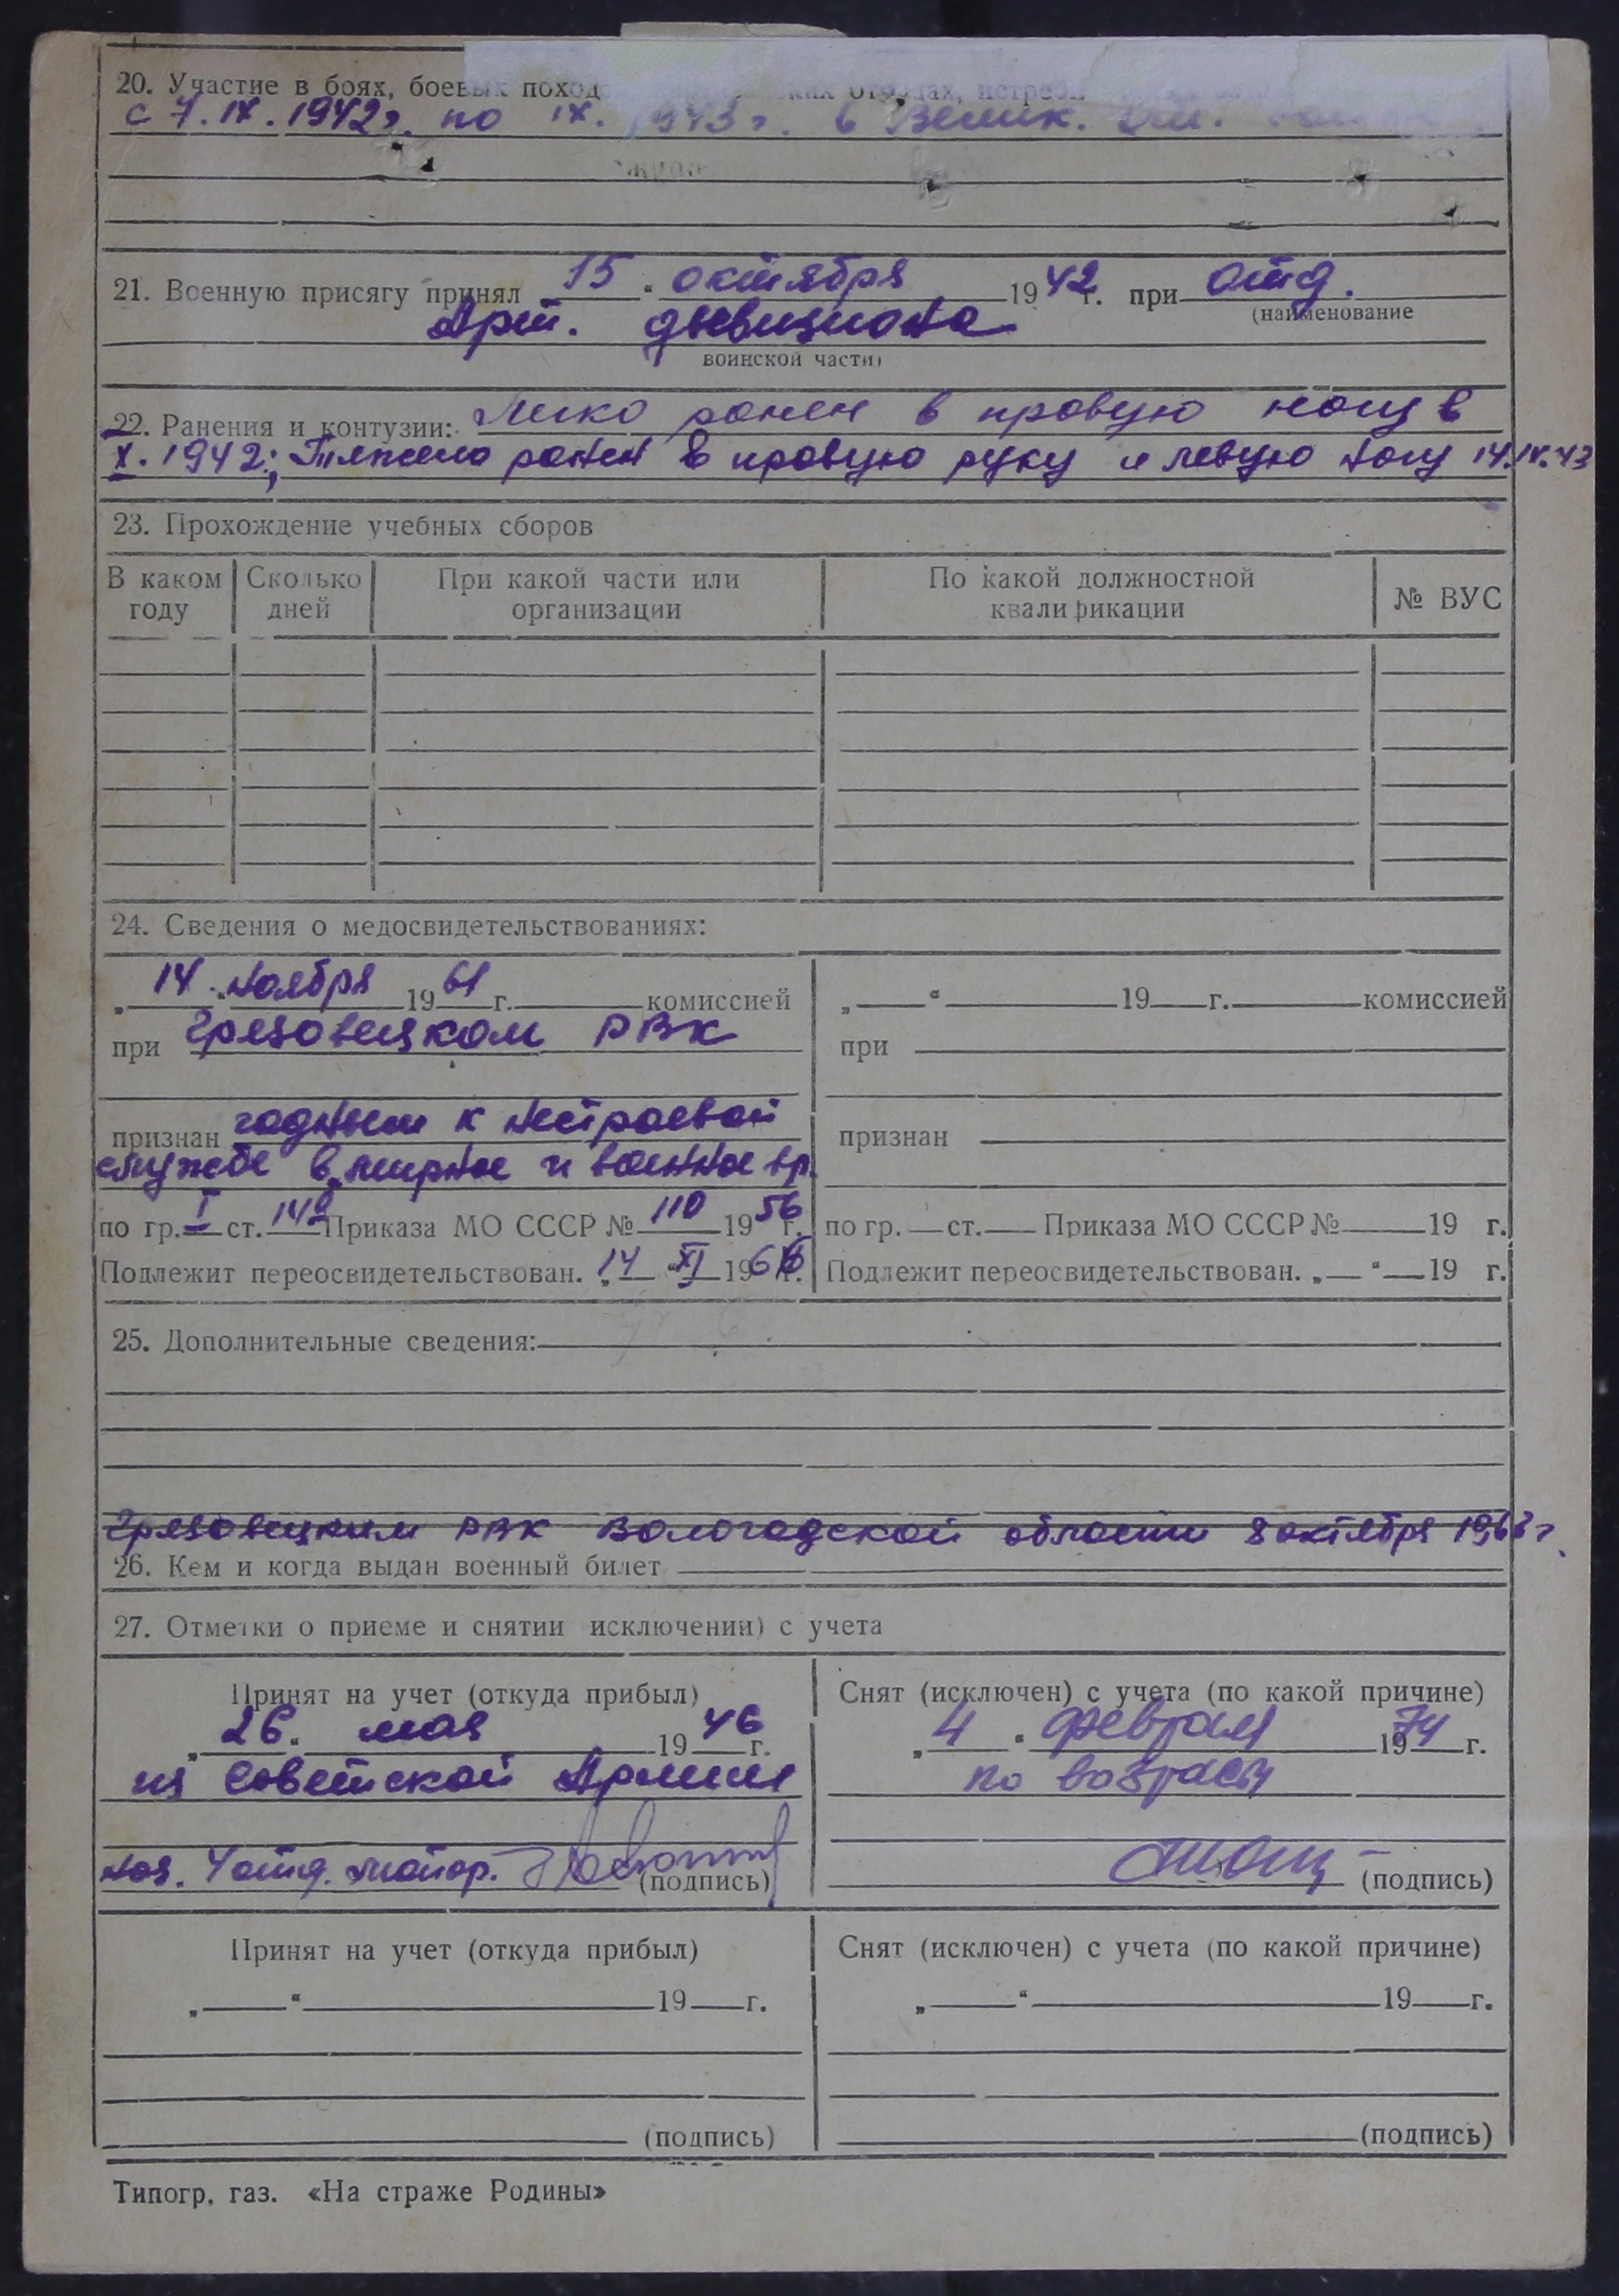 20. Участие в боях, боевых поход
с 7. IX. 1942 г. по IX. 1943 г. в Велик.
21. Военную присягу принял 15 " октября 1942 г. при отд.
(наименование
Арт. дивизиона
воинской части)
22. Ранения и контузии: Легко ранен в правую ногу в
X. 1942; Тяжело ранен в правую руку и левую ногу 14.IX.43
23. Прохождение учебных сборов
В каком году | Сколько дней | При какой части или организации | По какой должностной квалификации | № ВУС
24. Сведения о медосвидетельствованиях:
„ 14 " ноября 1961 г. комиссией
при Грязовецком РВК
признан годным к нестроевой
службе в мирное и военное вр.
по гр. I ст. 14б Приказа МО СССР № 110 1956 г.
Подлежит переосвидетельствован. „ 14 " XI 196 г.
„ " 19 г. комиссией
при
признан
по гр. ст. Приказа МО СССР № 19 г.
Подлежит переосвидетельствован. „ " 19 г.
25. Дополнительные сведения:
Грязовецким РВК Вологодской области 8 октября 1963 г.
26. Кем и когда выдан военный билет
27. Отметки о приеме и снятии исключении) с учета
Принят на учет (откуда прибыл)
„ 26 " мая 1946 г.
из Советской Армии
нач. 4 отд. майор.
(подпись)
Снят (исключен) с учета (по какой причине)
„ 4 " февраля 1974 г.
по возрасту
(подпись)
Принят на учет (откуда прибыл)
„ " 19 г.
(подпись)
Снят (исключен) с учета (по какой причине)
„ " 19 г.
(подпись)
Типогр. газ. «На страже Родины»